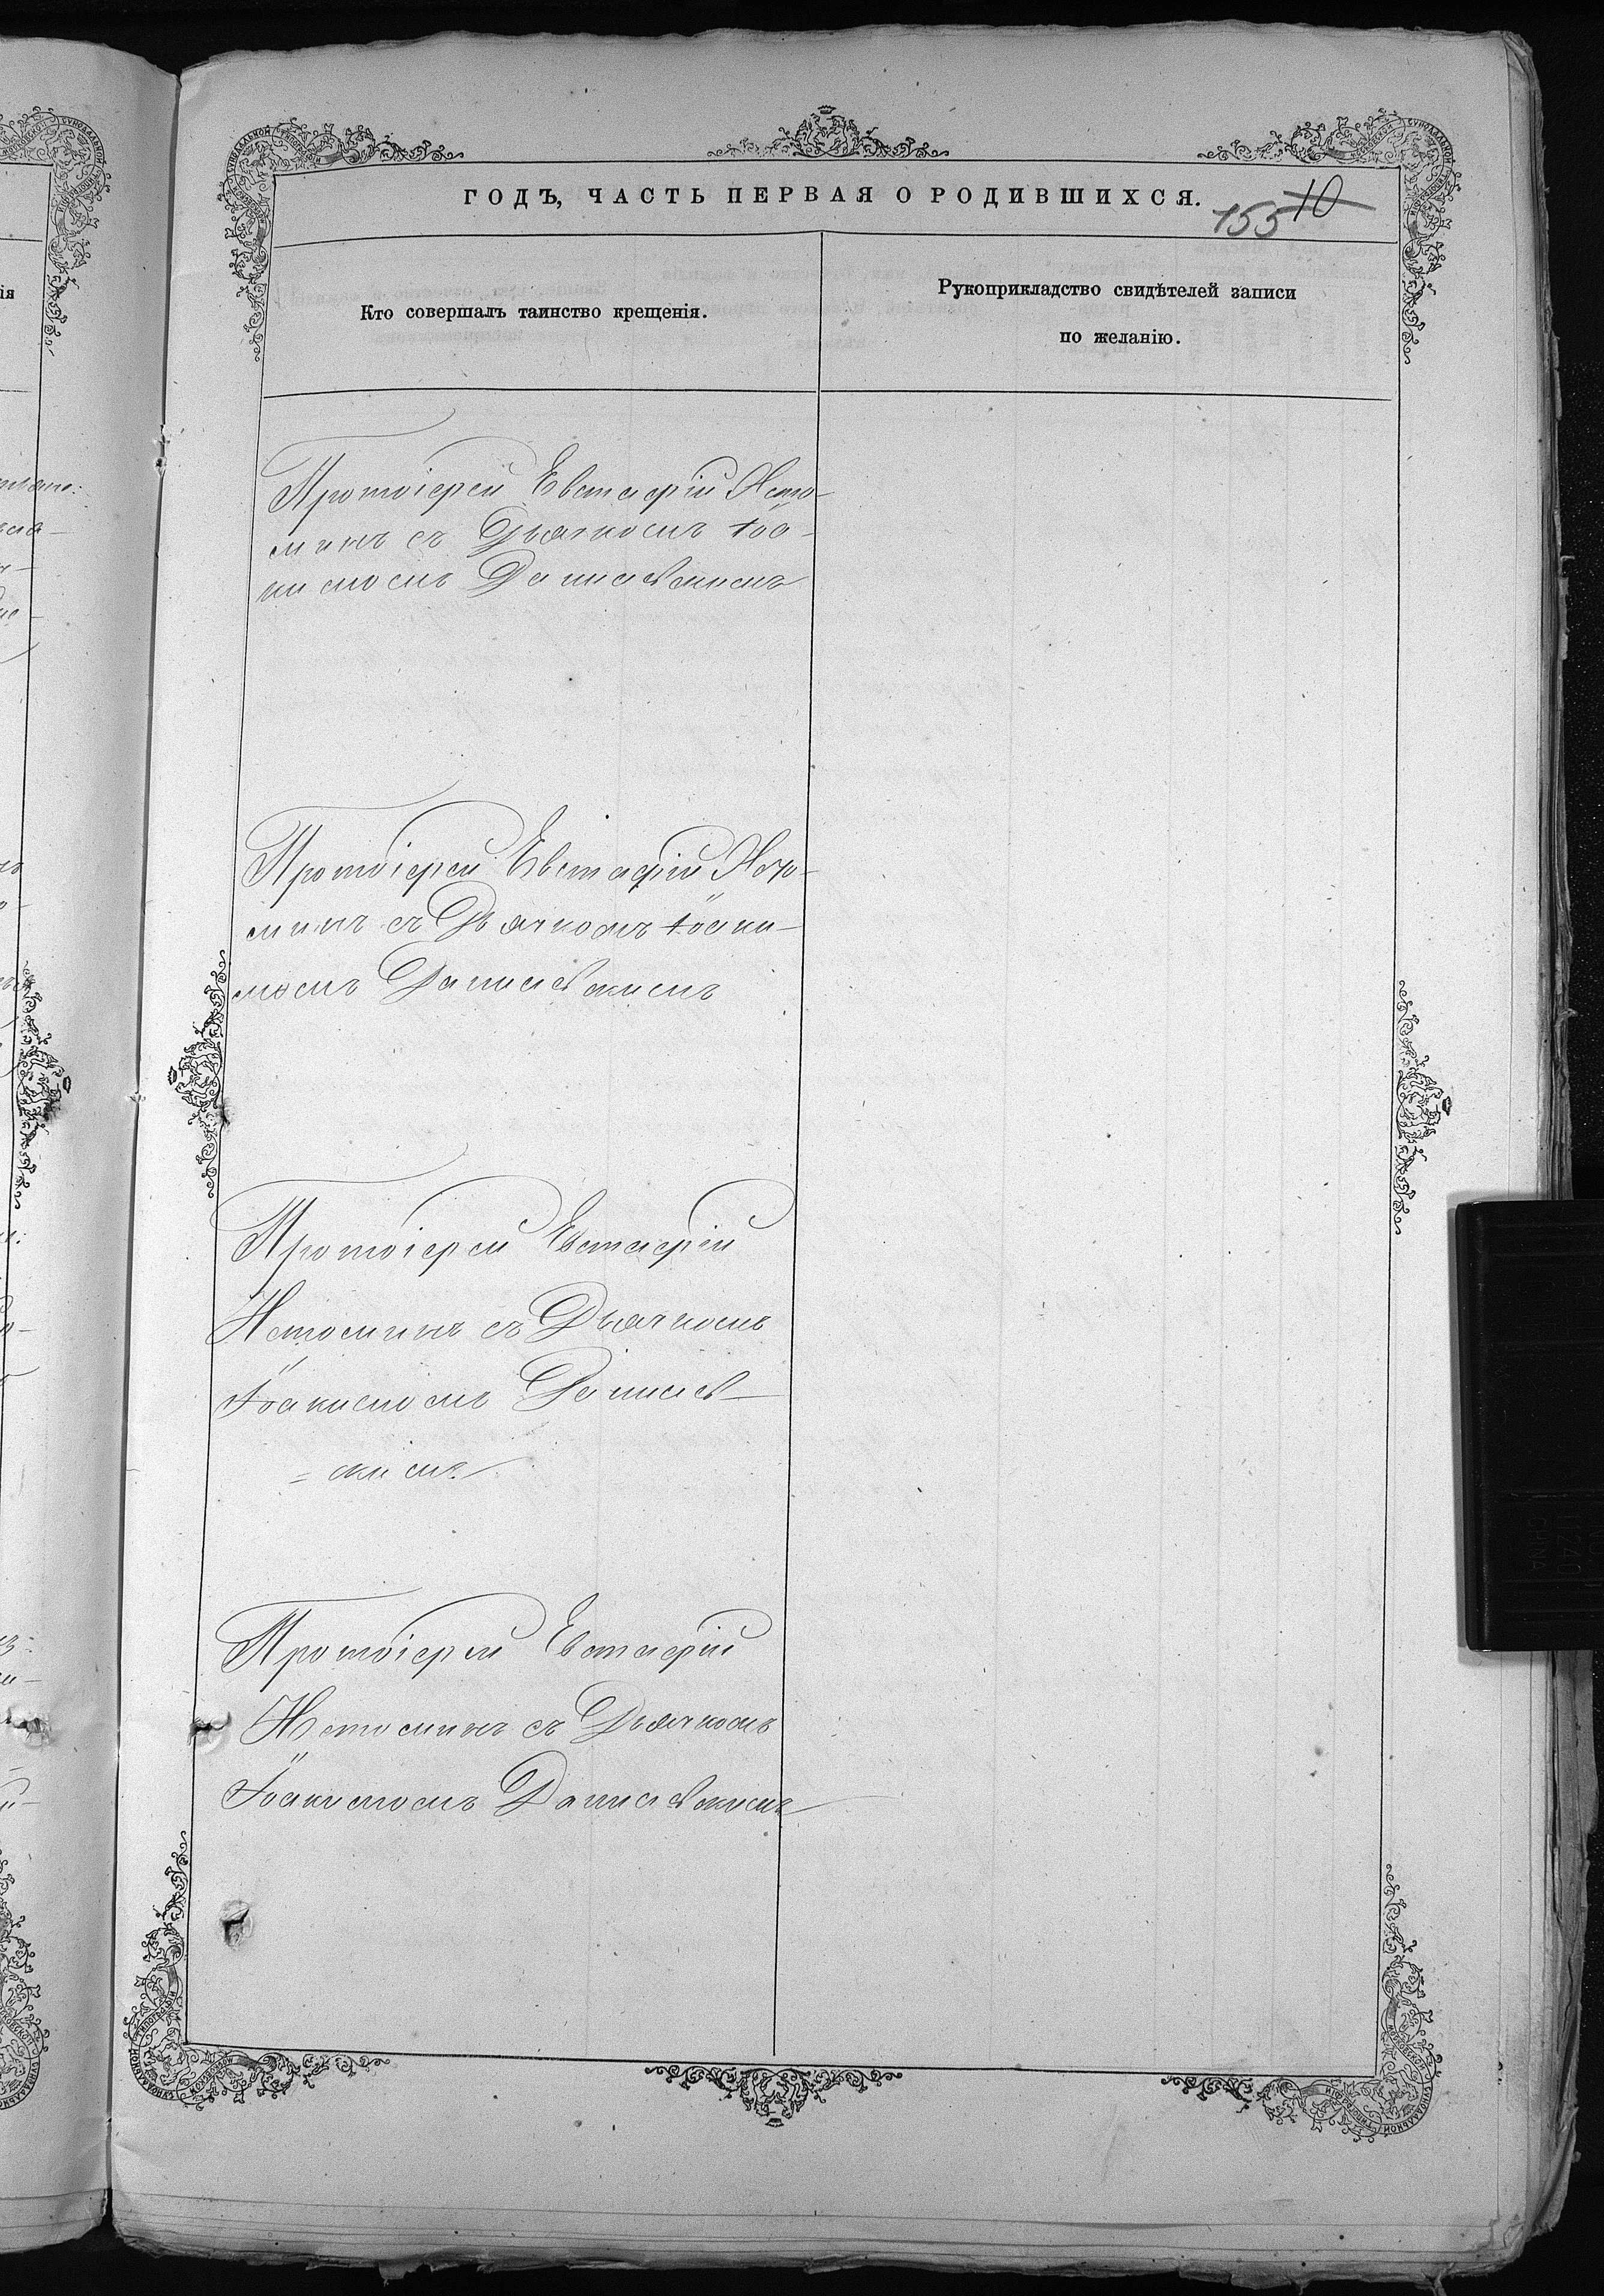 ГОДЪ, ЧАСТЬ ПЕРВАЯ О РОДИВШИХСЯ.
155 10
Кто совершалъ таинство крещенія.
Рукоприкладство свидѣтелей записи
по желанію.
Протоіерей Евстафій Исто-
минъ съ Дьячкомъ Іоа-
кимомъ Данилевскимъ
Протоіерей Евстафій Исто-
минъ съ Дьячкомъ Іоаки-
момъ Данилевскимъ
Протоіерей Евстафій
Истоминъ съ Дьячкомъ
Іоакимомъ Данилев-
= скимъ
Протоіерей Евстафій
Истоминъ съ Дьячкомъ
Іоакимомъ Данилевскимъ